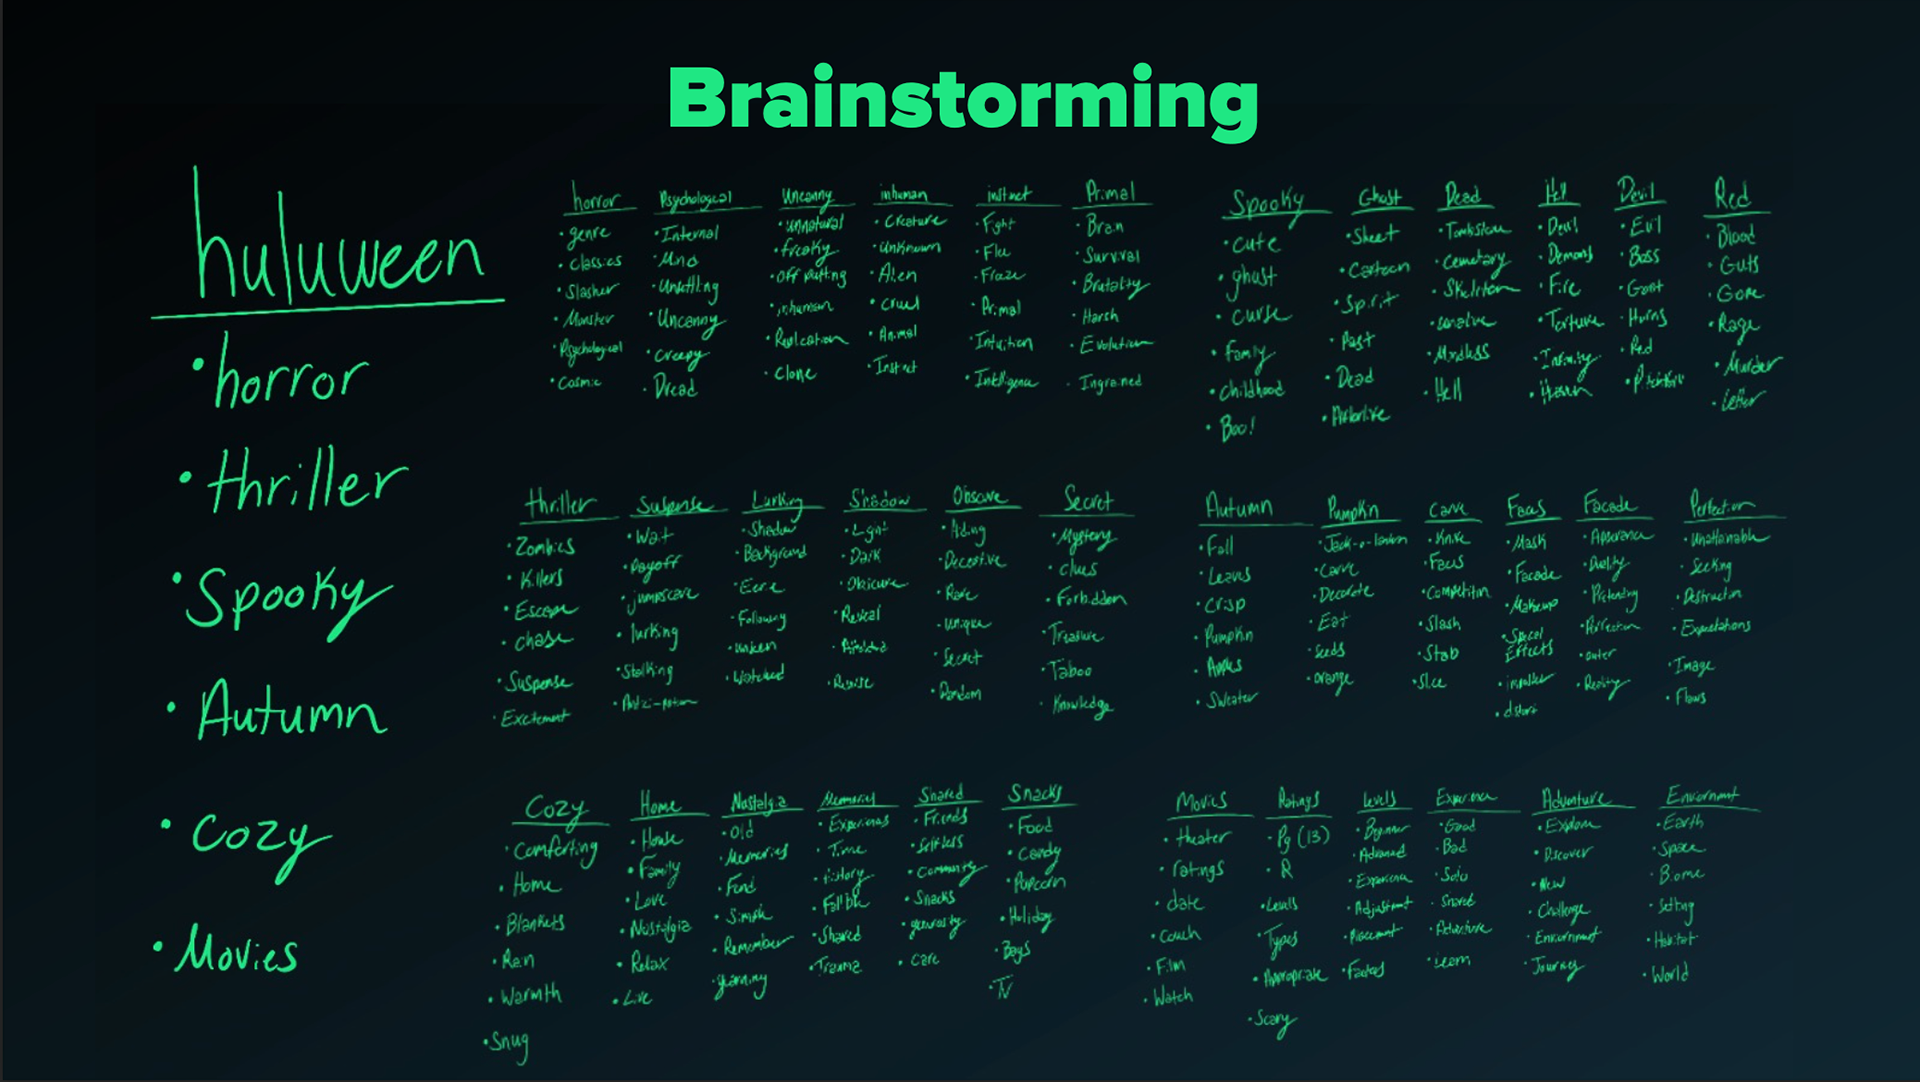 Brainstorming
huluween
• horror
• thriller
• Spooky
• Autumn
• Cozy
• Movies
horror
• genre
• classics
• Slasher
• Monster
• Psychological
• Cosmic
Psychological
• Internal
• Mind
• Unsettling
• Uncanny
• Creepy
• Dread
Uncanny
• unnatural
• freaky
• off putting
• inhuman
• Replication
• Clone
inhuman
• Creature
• Unknown
• Alien
• Cruel
• Animal
• Instinct
instinct
• Fight
• Flee
• Freeze
• Primal
• Intuition
• Intelligence
Primal
• Brain
• Survival
• Brutality
• Harsh
• Evolution
• Ingrained
Spooky
• Cute
• ghost
• Curse
• Family
• Childhood
• Boo!
Ghost
• Sheet
• Cartoon
• Spirit
• Past
• Dead
• Afterlive
Dead
• Tombstone
• Cemetary
• Skeleton
• Mindless
• Hell
Hell
• Devil
• Demons
• Fire
• Torture
Devil
• Evil
• Boss
• Goat
• Horns
• Red
Red
• Blood
• Guts
• Gore
• Rage
• Murder
• Letter
thriller
• Zombies
• Killers
• Escape
• Chase
• Suspense
• Excitement
Suspense
• Wait
• Payoff
• jumpscare
• lurking
• Stalking
Lurking
• Shadow
• Background
• Eerie
• Following
• Watched
Shadow
• Light
• Dark
• Obscure
• Reveal
Obscure
• Hiding
• Deceptive
• Rare
• Unique
• Secret
• Random
Secret
• Mystery
• Clues
• Forbidden
• Treasure
• Taboo
• Knowledge
Autumn
• Fall
• Leaves
• Crisp
• Pumpkin
• Apples
• Sweater
Pumpkin
• Jack-o-lantern
• Carve
• Decorate
• Eat
• Seeds
• orange
Carve
• Knive
• Faces
• Competition
• Slash
• Stab
• Slice
Faces
• Mask
• Facade
• Makeup
• Special Effects
• imposter
• distort
Facade
• Appearance
• Duality
• Pretending
• Perfection
• outer
• Reality
Perfection
• Unattainable
• Seeking
• Destruction
• Expectations
• Image
• Flaws
Cozy
• Comforting
• Home
• Blankets
• Rain
• Warmth
• Snug
Home
• House
• Family
• Love
• Nostalgia
• Relax
• Live
Nostalgia
• Old
• Memories
• Fond
• Simple
• Remember
• yearning
Memories
• Experiences
• Time
• history
• Fallible
• Shared
• Trauma
Shared
• Friends
• selfless
• Community
• Snacks
• generosity
• Care
Snacks
• Food
• Candy
• Popcorn
• Holiday
• Bags
• TV
Movies
• theater
• ratings
• date
• Couch
• Film
• Watch
Ratings
• Pg (13)
• R
• Levels
• Types
• Appropriate
• Scary
Levels
• Beginner
• Advanced
• Experience
• Adjustment
• Placement
• Factors
Experience
• Good
• Bad
• Solo
• Shared
• Adventure
• Learn
Adventure
• Explore
• Discover
• New
• Challenge
• Enviornment
• Journey
Enviornment
• Earth
• Space
• Biome
• Setting
• Habitat
• World